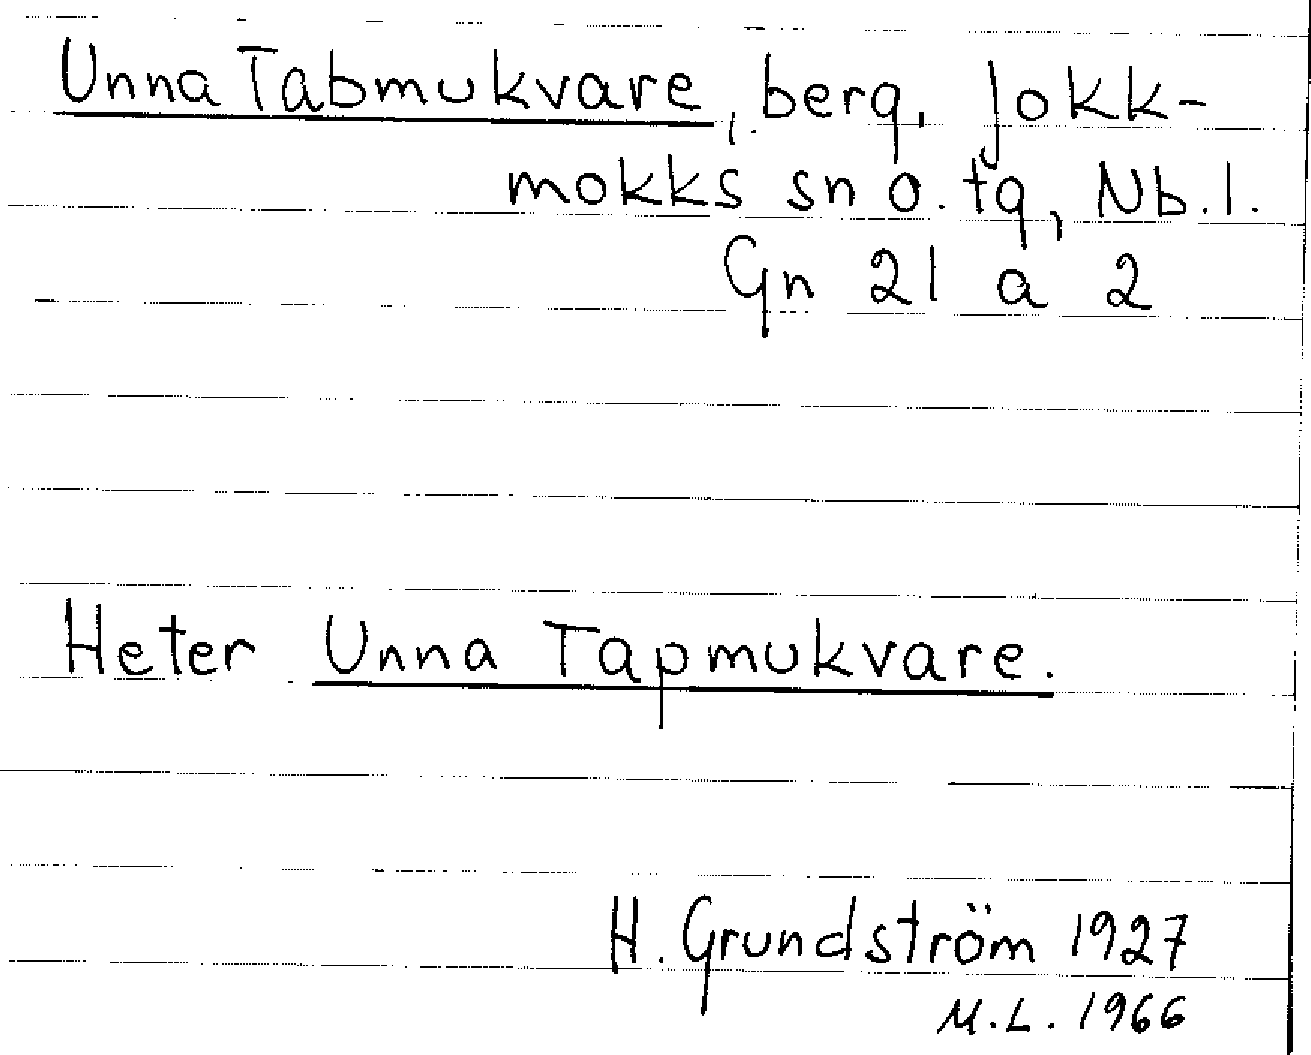 Unna Tabmukvare, berg, Jokk-
mokks sn o. tg, Nb.l.
Gn 21 a 2
Heter Unna Tapmukvare.
H. Grundström 1927
M.L. 1966